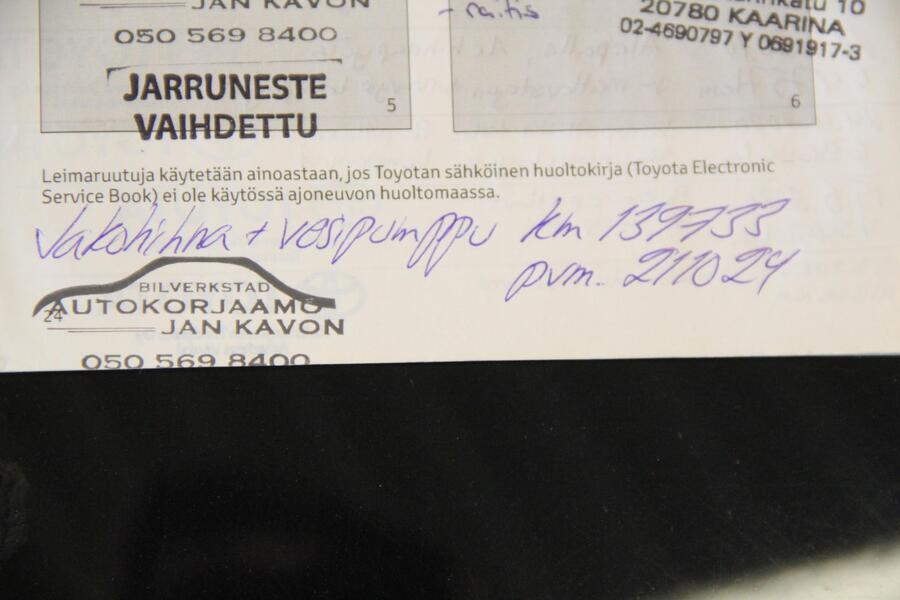 JAN KAVON
050 569 8400
JARRUNESTE
VAIHDETTU
5
- raitis
10
20780 KAARINA
02-4690797 Y 0691917-3
6
Leimaruutuja käytetään ainoastaan, jos Toyotan sähköinen huoltokirja (Toyota Electronic
Service Book) ei ole käytössä ajoneuvon huoltomaassa.
Jakohihna + vesipumppu km 139733
pvm. 211024
BILVERKSTAD
AUTOKORJAAMO
24
JAN KAVON
050 569 8400